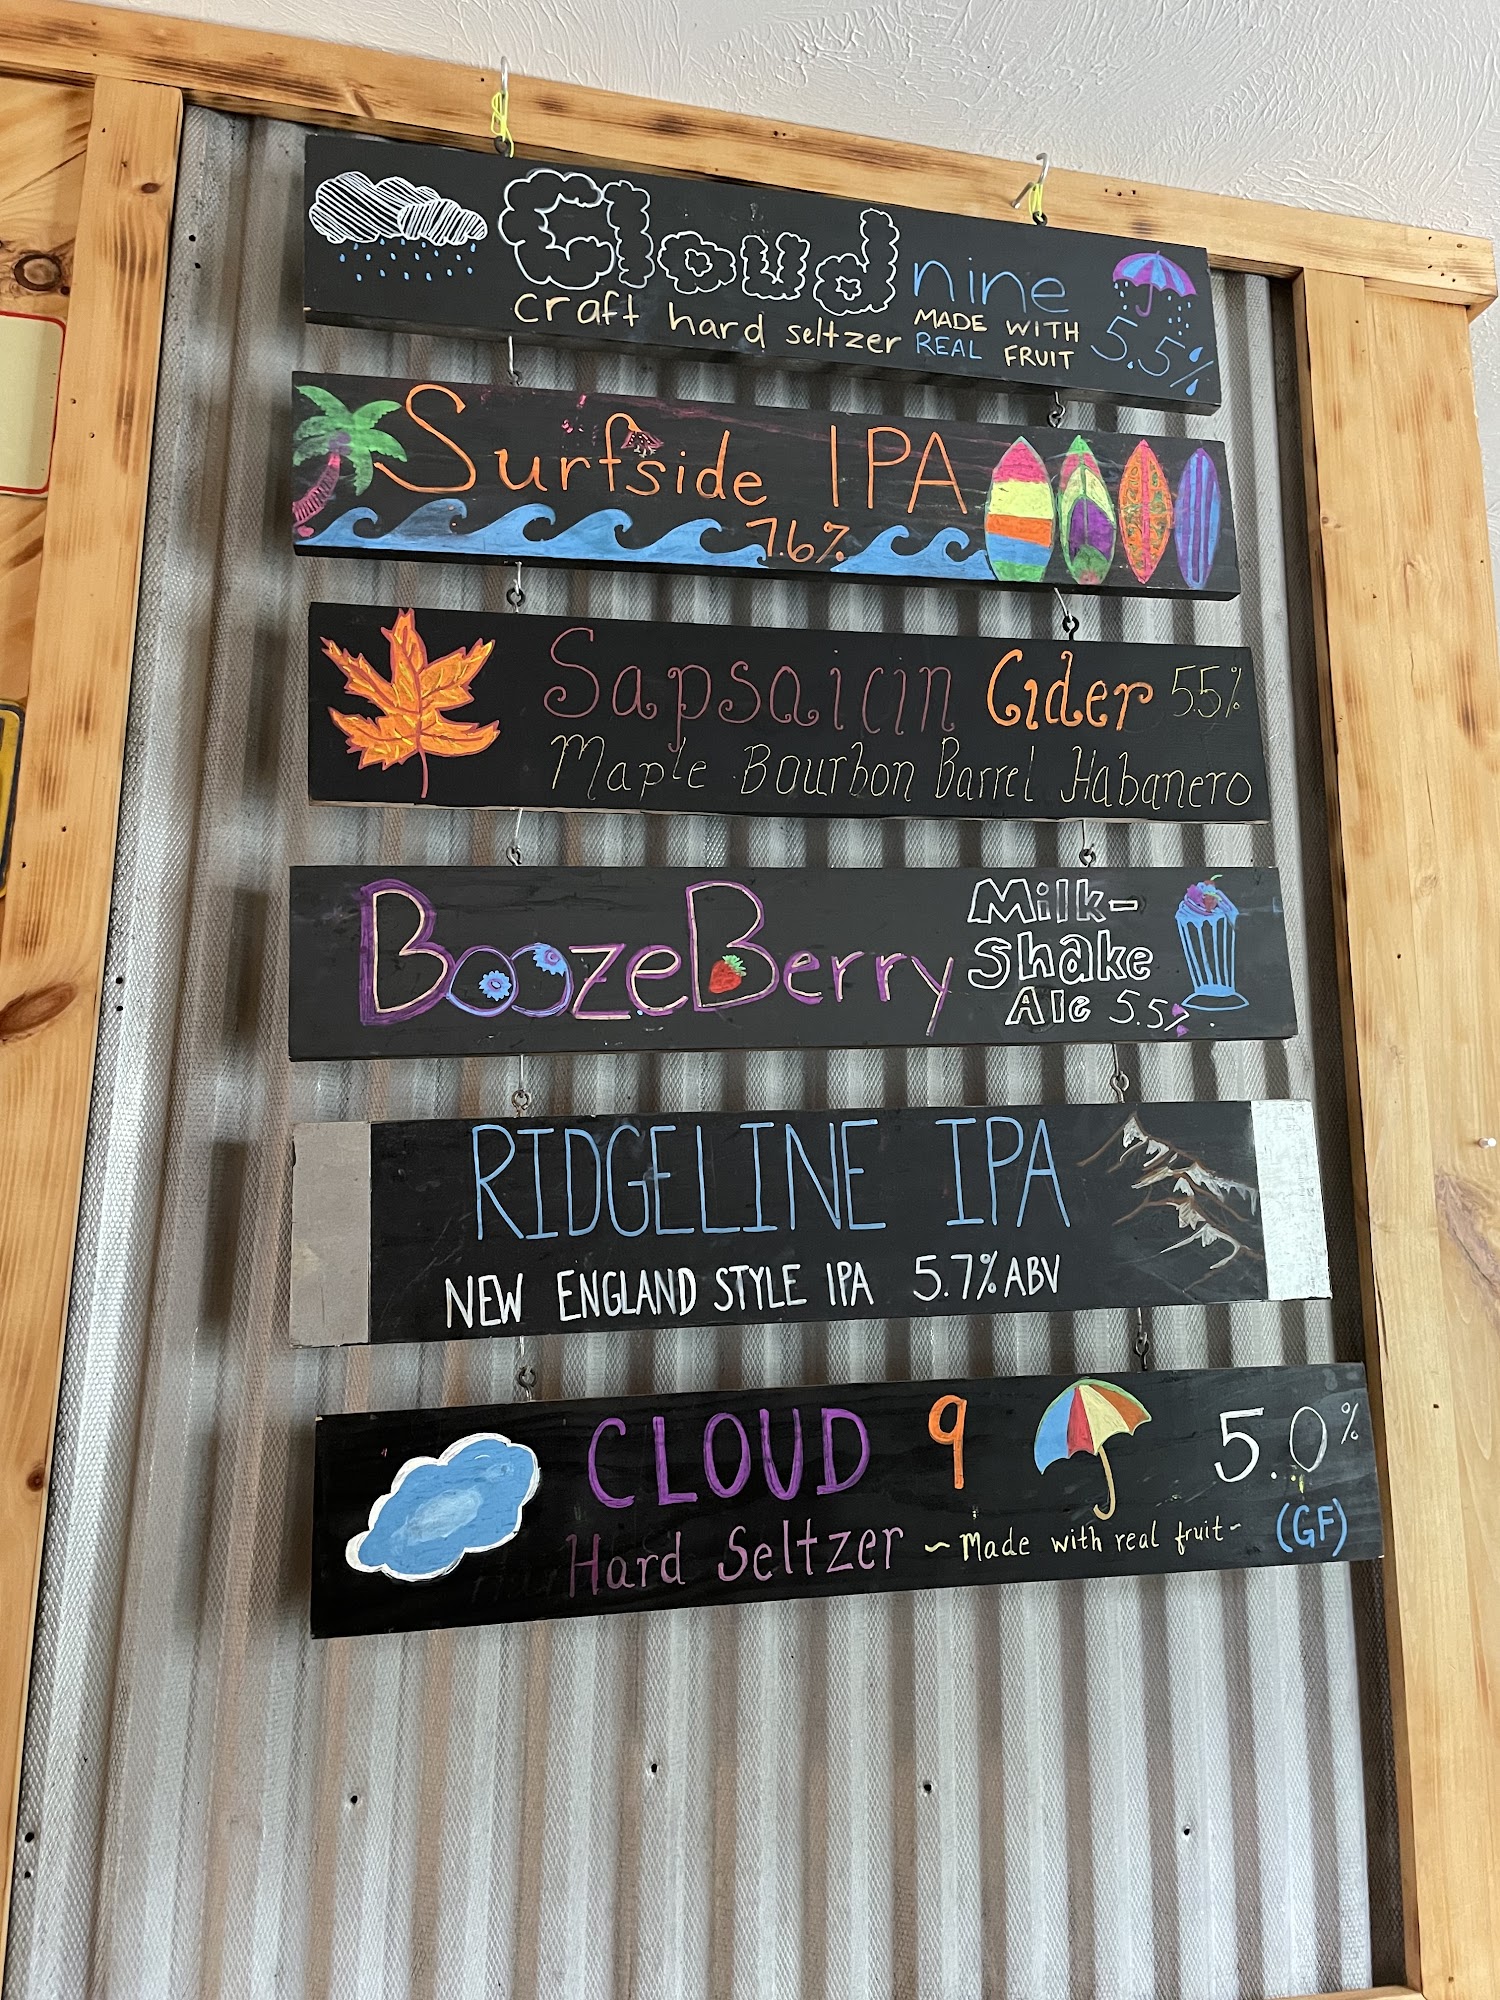 Cloud nine
craft hard seltzer MADE WITH
REAL FRUIT 5.5%
Surfside IPA
7.6%
Sapsaicin Cider 5.5%
Maple Bourbon Barrel Habanero
BoozeBerry Milk-
shake
Ale 5.5%
RIDGELINE IPA
NEW ENGLAND STYLE IPA 5.7% ABV
CLOUD 9 5.0%
Hard Seltzer ~Made with real fruit~ (GF)